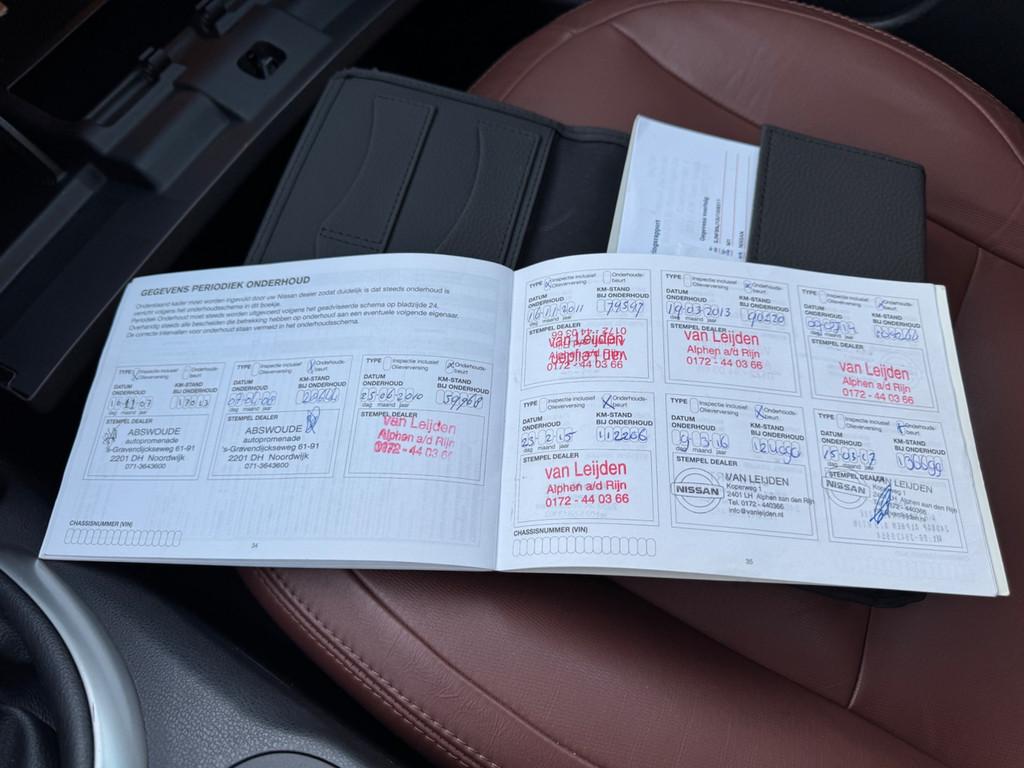 GEGEVENS PERIODIEK ONDERHOUD
Onderstaand kader moet worden ingevuld door uw Nissan dealer zodat duidelijk is dat steeds onderhoud is
verricht volgens het onderhoudsschema in dit boekje.
Periodiek Onderhoud moet steeds worden uitgevoerd volgens het geadviseerde schema op bladzijde 24.
Overhandig steeds alle bescheiden die betrekking hebben op onderhoud aan een eventuele volgende eigenaar.
De correcte intervallen voor onderhoud staan vermeld in het onderhoudsschema.
TYPE Inspectie inclusief Olieverversing Onderhouds-beurt
DATUM ONDERHOUD KM-STAND BIJ ONDERHOUD
dag maand jaar
STEMPEL DEALER
ABSWOUDE
autopromenade
's-Gravendijckseweg 61-91
2201 DH Noordwijk
071-3643600
TYPE Inspectie inclusief Olieverversing Onderhouds-beurt
DATUM ONDERHOUD KM-STAND BIJ ONDERHOUD
07-04-08
dag maand jaar
STEMPEL DEALER
ABSWOUDE
autopromenade
's-Gravendijckseweg 61-91
2201 DH Noordwijk
071-3643600
TYPE Inspectie inclusief Olieverversing Onderhouds-beurt
DATUM ONDERHOUD KM-STAND BIJ ONDERHOUD
25-06-2010 59968
dag maand jaar
STEMPEL DEALER
van Leijden
Alphen a/d Rijn
0172 - 44 03 66
CHASSISNUMMER (VIN)
34
TYPE Inspectie inclusief Olieverversing Onderhouds-beurt
DATUM ONDERHOUD KM-STAND BIJ ONDERHOUD
16-11-2011 79597
dag maand jaar
STEMPEL DEALER
van Leijden
Alphen a/d Rijn
0172 - 44 03 66
TYPE Inspectie inclusief Olieverversing Onderhouds-beurt
DATUM ONDERHOUD KM-STAND BIJ ONDERHOUD
19-03-2013 90220
dag maand jaar
STEMPEL DEALER
van Leijden
Alphen a/d Rijn
0172 - 44 03 66
TYPE Inspectie inclusief Olieverversing Onderhouds-beurt
DATUM ONDERHOUD KM-STAND BIJ ONDERHOUD
dag maand jaar
STEMPEL DEALER
van Leijden
Alphen a/d Rijn
0172 - 44 03 66
TYPE Inspectie inclusief Olieverversing Onderhouds-beurt
DATUM ONDERHOUD KM-STAND BIJ ONDERHOUD
23-2-15 112266
dag maand jaar
STEMPEL DEALER
van Leijden
Alphen a/d Rijn
0172 - 44 03 66
TYPE Inspectie inclusief Olieverversing Onderhouds-beurt
DATUM ONDERHOUD KM-STAND BIJ ONDERHOUD
9-3-16
dag maand jaar
STEMPEL DEALER
NISSAN
VAN LEIJDEN
Koperweg 1
2401 LH Alphen aan den Rijn
Tel. 0172 - 440366
info@vanleijden.nl
TYPE Inspectie inclusief Olieverversing Onderhouds-beurt
DATUM ONDERHOUD KM-STAND BIJ ONDERHOUD
15-03-17
dag maand jaar
STEMPEL DEALER
NISSAN
VAN LEIJDEN
Koperweg 1
2401 LH Alphen aan den Rijn
0172 - 440366
info@vanleijden.nl
CHASSISNUMMER (VIN)
35